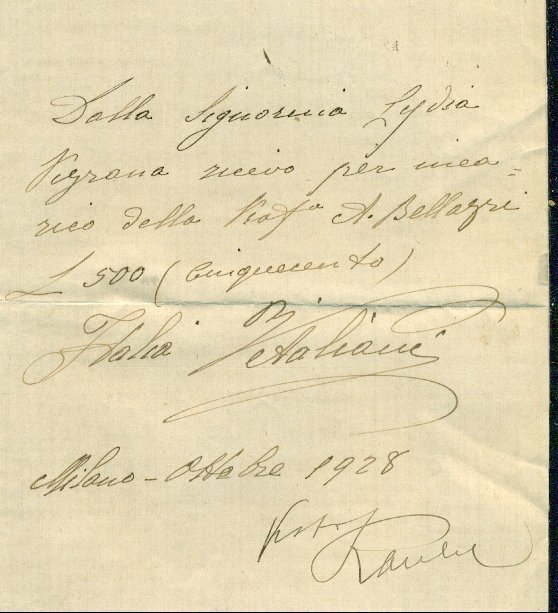 Dalla Signorina Lydia
ricevo per inca=
rico della A. Bellazzi
L 500 (Cinquecento)
Italia Vitaliani
Milano - Ottobre 1928